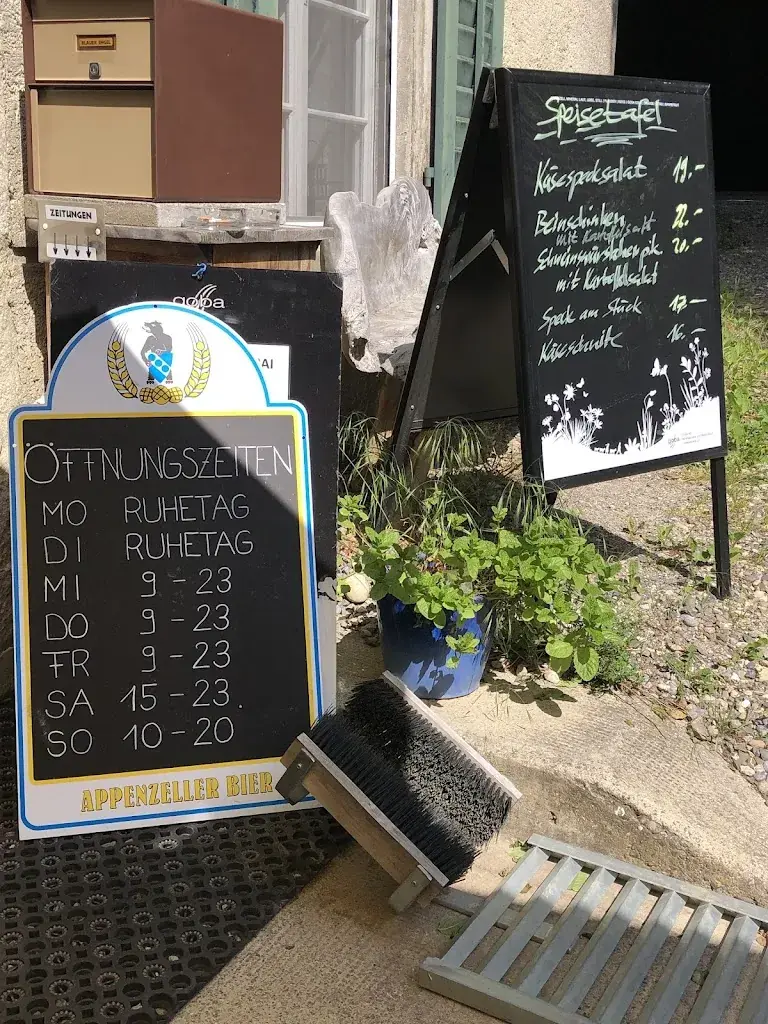 ZEITUNGEN
goba
ÖFFNUNGSZEITEN
MO RUHETAG
DI RUHETAG
MI 9 - 23
DO 9 - 23
FR 9 - 23
SA 15 - 23.
SO 10 - 20
APPENZELLER BIER
Speisetafel
Käsespecksalat 19.-
Beinschinken 22.-
mit Kartoffelsalat
20.-
mit Kartoffelsalat
Speck am Stück 17.-
Käseschnitte 16.-